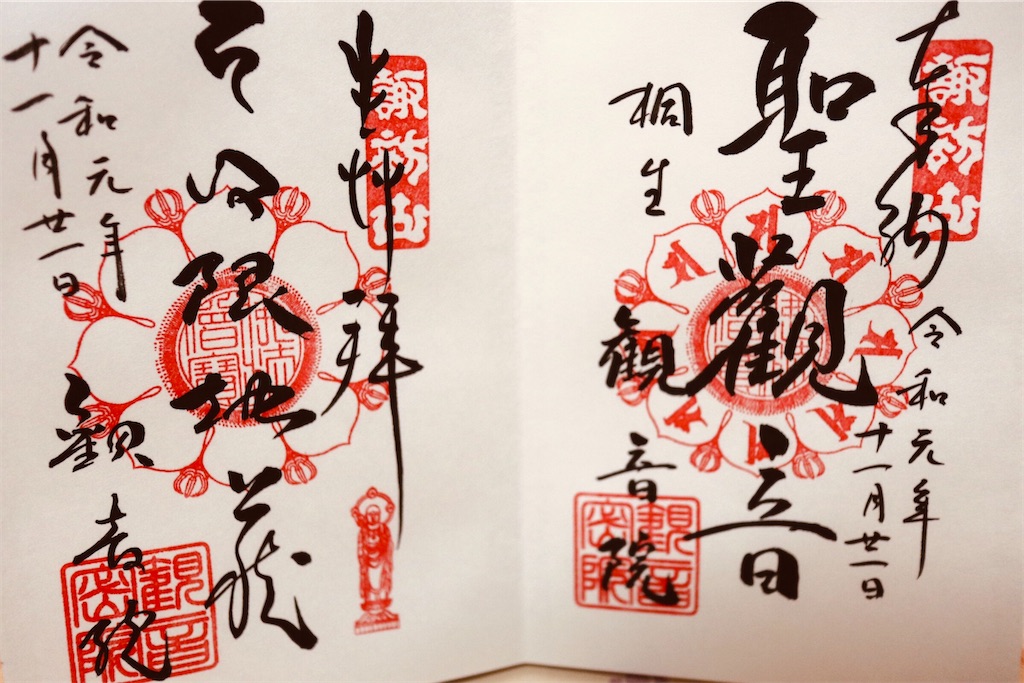 諏訪山
令和元年
十一月廿一日
聖觀音
桐生
観音院
観音密院
諏訪山
拝
日限地蔵
令和元年
十一月廿一日
観音院
観音密院